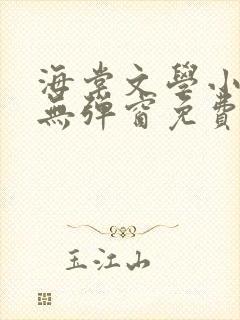 海棠文學小
無彈窗免費
玉江山